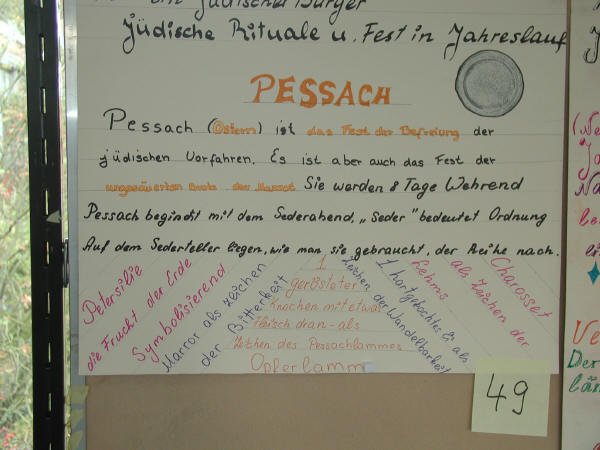 ein jüdischer Bürger
jüdische Rituale u. Fest in Jahreslauf
PESSACH
Pessach (Ostern) ist das Fest der Befreiung der
jüdischen Vorfahren. Es ist aber auch das Fest der
ungesäuerten Brote der Massot Sie werden 8 Tage Wehrend
Pessach begindt mit dem Sederabend, "Seder" bedeutet Ordnung
Auf dem Sederteller liegen, wie man sie gebraucht, der Reihe nach.
Petersilie
die Frucht der Erde
Symbolisierend
Marror als Zeichen
der Bitterkeit
1
gerösteter
Knochen mit etwas
Fleisch dran - als
Zeichen des Pessachlammes
Opferlamm
1 hartgekochtes Ei als
Zeichen der Wandelbarkeit
Charosset
als Zeichen der
Lehms
49
Der